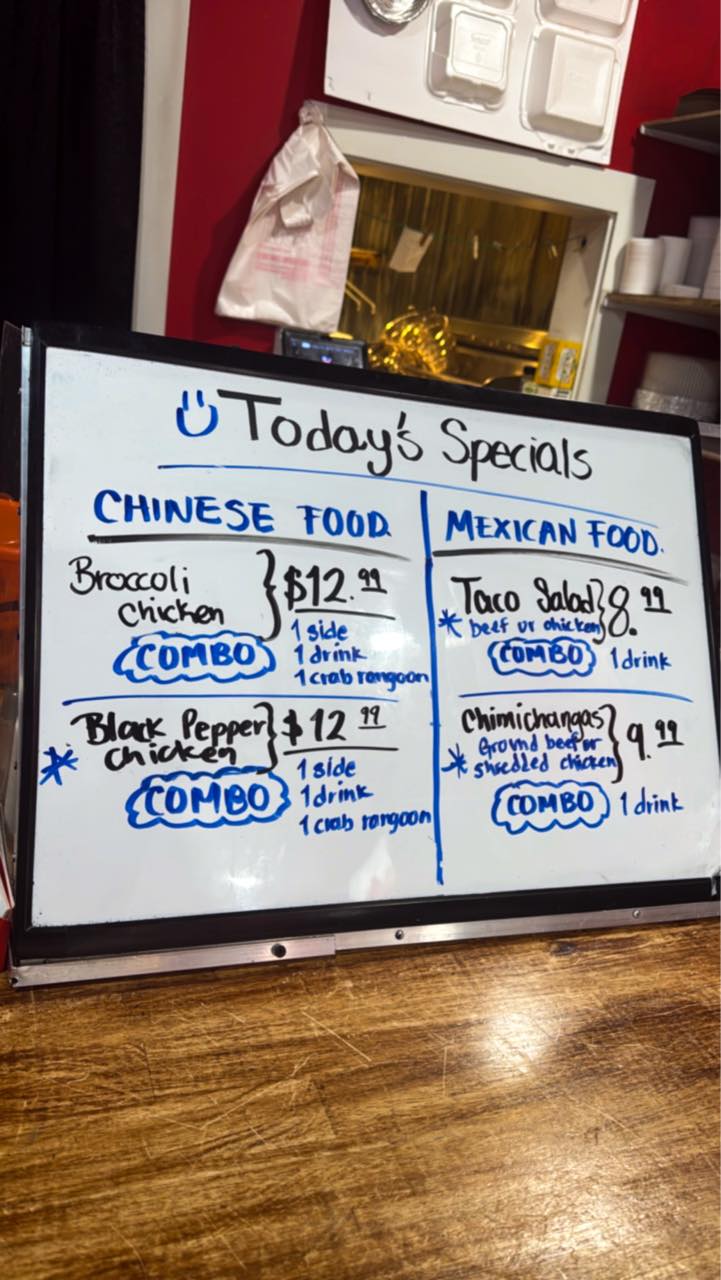 Today's Specials
CHINESE FOOD
Broccoli
Chicken
$12.99
COMBO
1 side
1 drink
1 crab rangoon
Black Pepper
Chicken
$12 99
COMBO
1 side
1 drink
1 crab rangoon
MEXICAN FOOD.
Taco Salad
8.99
* beef or chicken
COMBO
1 drink
Chimichangas
9.99
Ground beef or
* shredded chicken
COMBO
1 drink